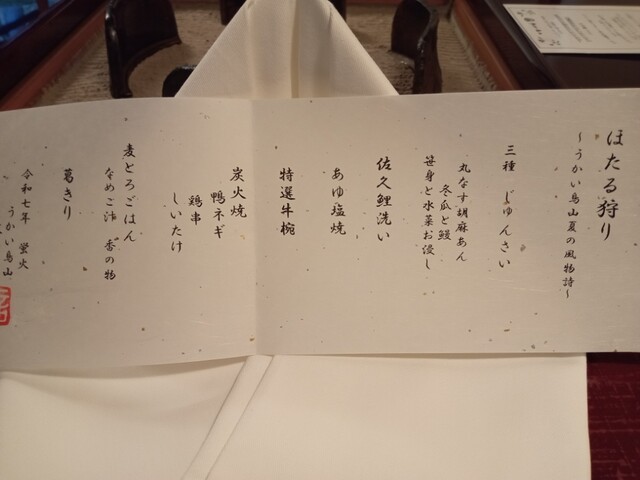 ほたる狩り
～うかい鳥山夏の風物詩～
三種 じゅんさい
丸なす胡麻あん
冬瓜と鰻
笹身と水菜お浸し
佐久鯉洗い
あゆ塩焼
特選牛椀
炭火焼
鴨ネギ
鶏串
しいたけ
麦とろごはん
なめこ汁 香の物
葛きり
令和七年 蛍火
うかい鳥山